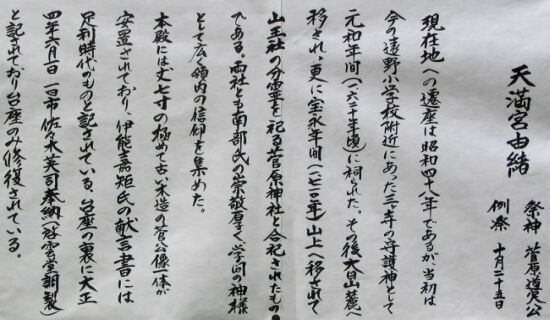 天満宮由緒
祭神 菅原道真公
例祭 十月二十五日
現在地への遷座は昭和四十八年であるが、当初は
今の遠野小学校附近にあった三ヶ寺の守護神として
元和年間(一六二一年頃)に祠られた。その後大日山麓へ
移され、更に宝永年間(一七一〇年)山上へ移されて
山王社の分霊を祀る菅原神社へ合祀されたもの
である。両社とも南部氏の崇敬厚く、学問の神様
として広く領内の信仰を集めた。
本殿には丈七寸の極めて古い木造の菅公像一体が
安置されており、伊能嘉矩氏の献言書には
足利時代のものと記されている。台座の裏に大正
四年六月一日 一日市 佐々木英司奉納(啓雲堂調製)
と記されており台座のみ修復されている。